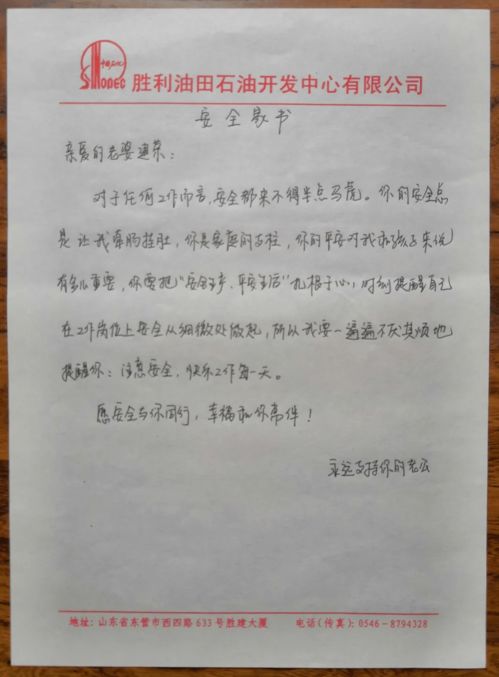 中国石化
SINOPEC 胜利油田石油开发中心有限公司
安全家书
亲爱的老婆建荣：
对于任何工作而言，安全都来不得半点马虎。你的安全总
是让我牵肠挂肚，你是家庭的支柱，你的平安对我和孩子来说
有多么重要，你要把“安全生产、平安生活”扎根于心，时刻提醒自己
在工作岗位上安全从细微处做起，所以我要一遍遍不厌其烦地
提醒你：注意安全，快乐工作每一天。
愿安全与你同行，幸福和你常伴！
永远支持你的老公
地址：山东省东营市西四路633号胜建大厦 电话（传真）：0546-8794328